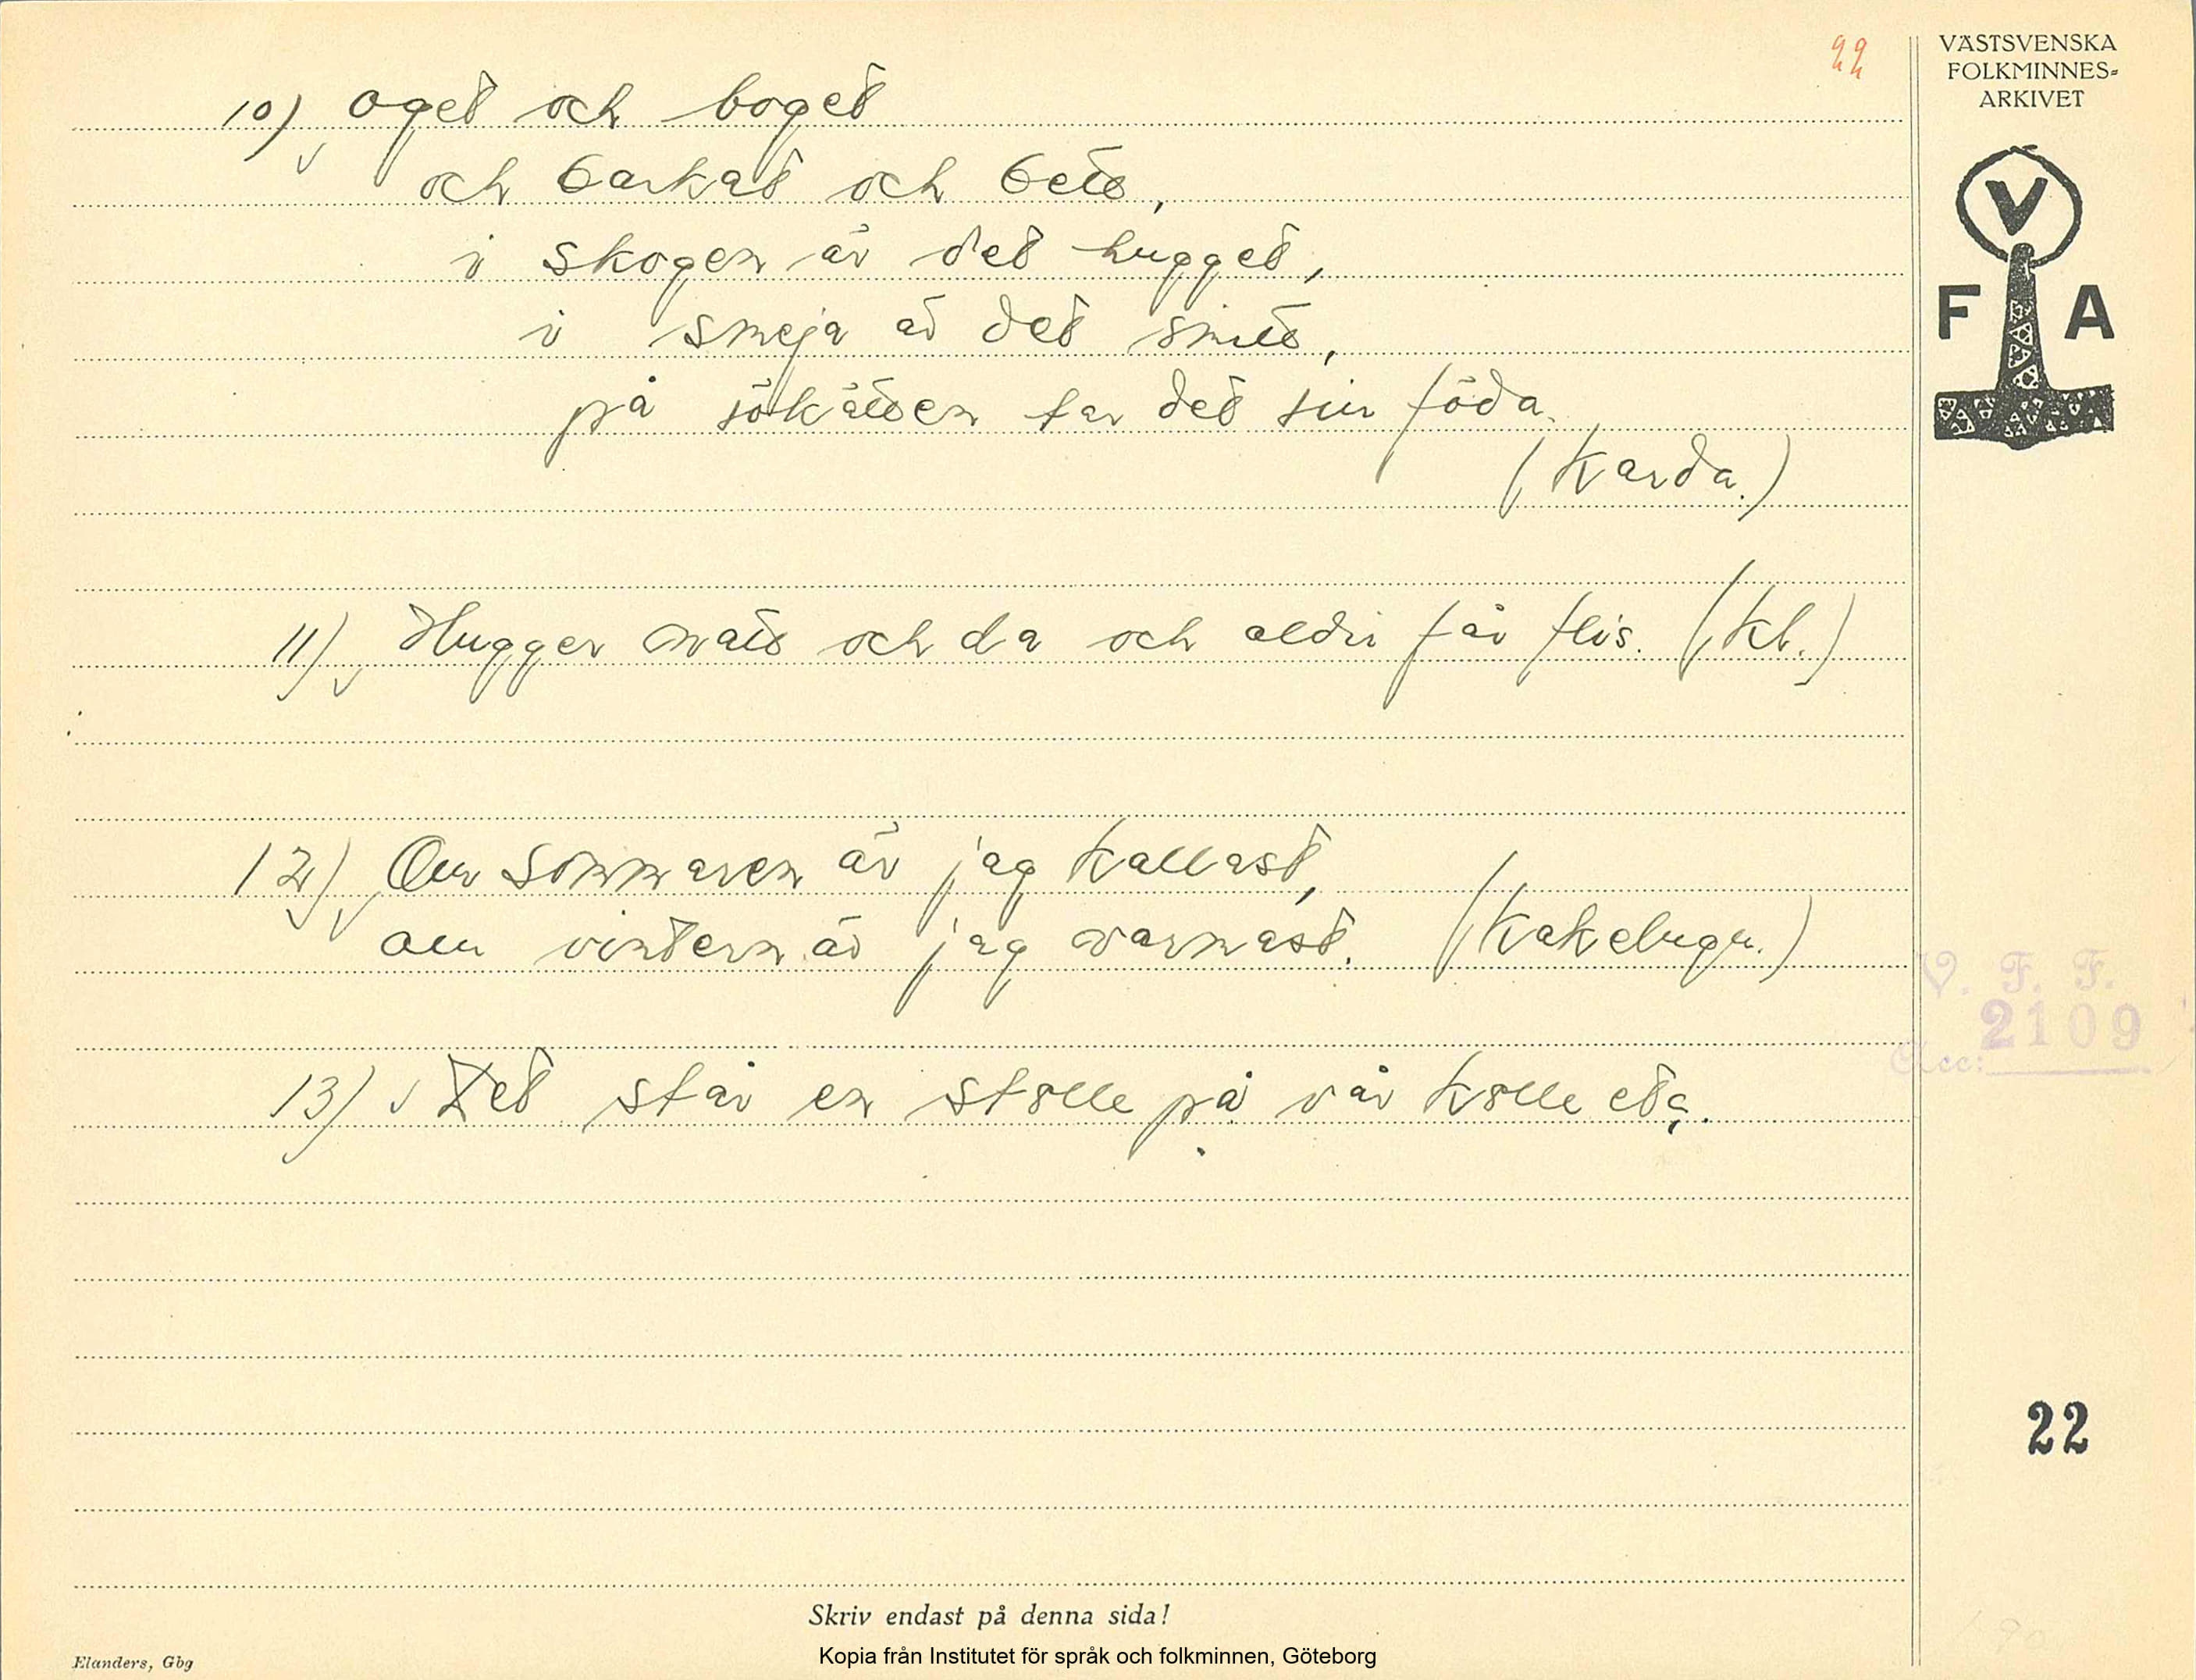 22
VÄSTSVENSKA
FOLKMINNES-
ARKIVET
V
F A
10) oget och boget
och barkat och bett,
i skogen är det hugget,
i smeja är det smitt,
på sökätten tar det sin föda.
(Karda.)
11) Hugger natt och da och aldri får flis. (Kl.)
12) Om sommaren är jag kallast,
om vintern är jag varmast. (Kakelugn.)
V. F. F.
2109
Acc:
13) Det står en stolle på vår kolle etc.
22
Skriv endast på denna sida!
Kopia från Institutet för språk och folkminnen, Göteborg
Elanders, Gbg